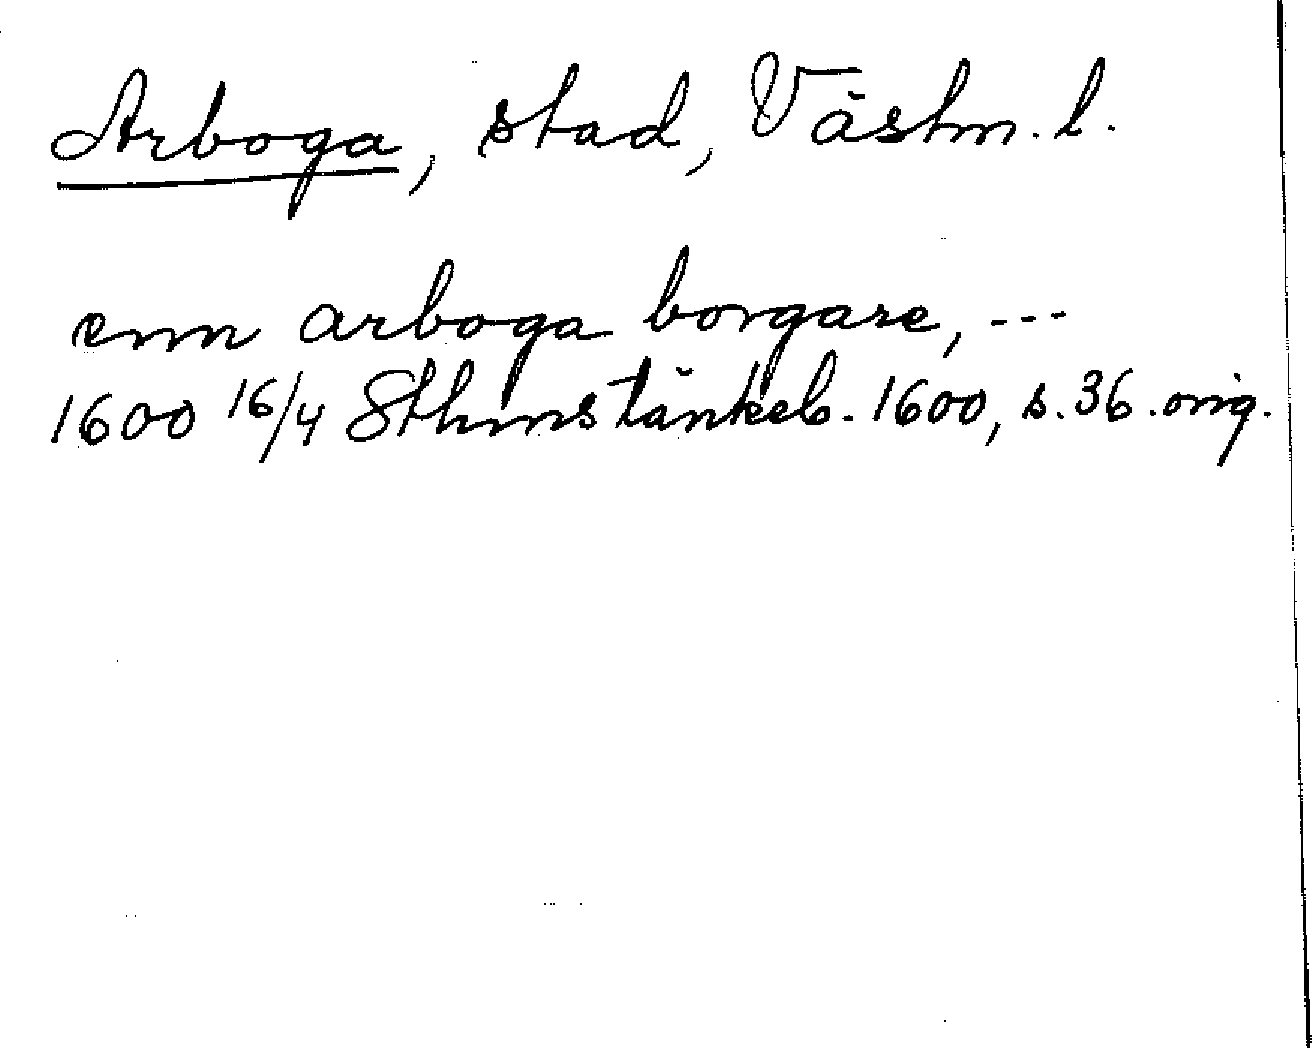 Arboga, stad, Västm. l.
enn arboga borgare, ---
1600 16/4 Sthms tänkeb. 1600, s. 36. orig.